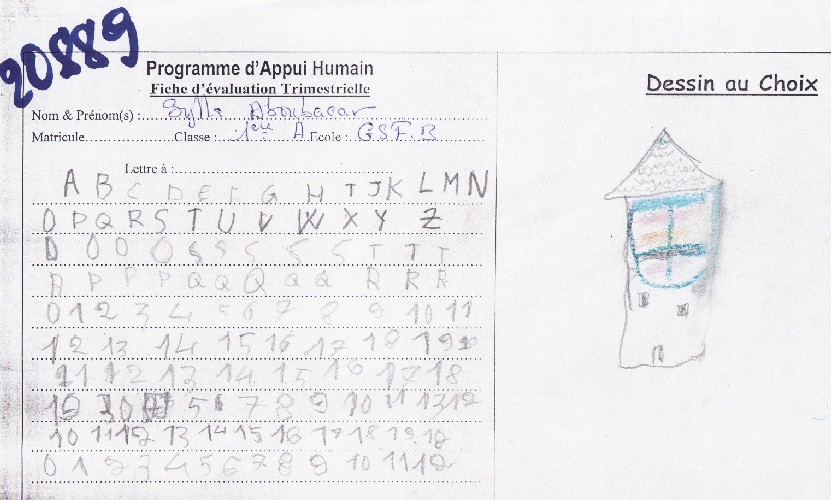 20889
Programme d'Appui Humain
Fiche d'évaluation Trimestrielle
Nom & Prénom(s) : Sylla Aboubacar
Matricule Classe : 1ère A Ecole : GSF.B
Lettre à :
A B C D E F G H I J K L M N
O P Q R S T U V W X Y Z
D O O O S S S S S T T T
P P P P Q Q Q Q Q R R R
0 1 2 3 4 5 6 7 8 9 10 11
12 13 14 15 16 17 18 19
11 11 12 13 14 15 16 17 18
5 7 8 9 10 11 13 12
10 11 12 13 14 15 16 17 18 19 18
0 1 2 3 4 5 6 7 8 9 10 11 12
Dessin au Choix